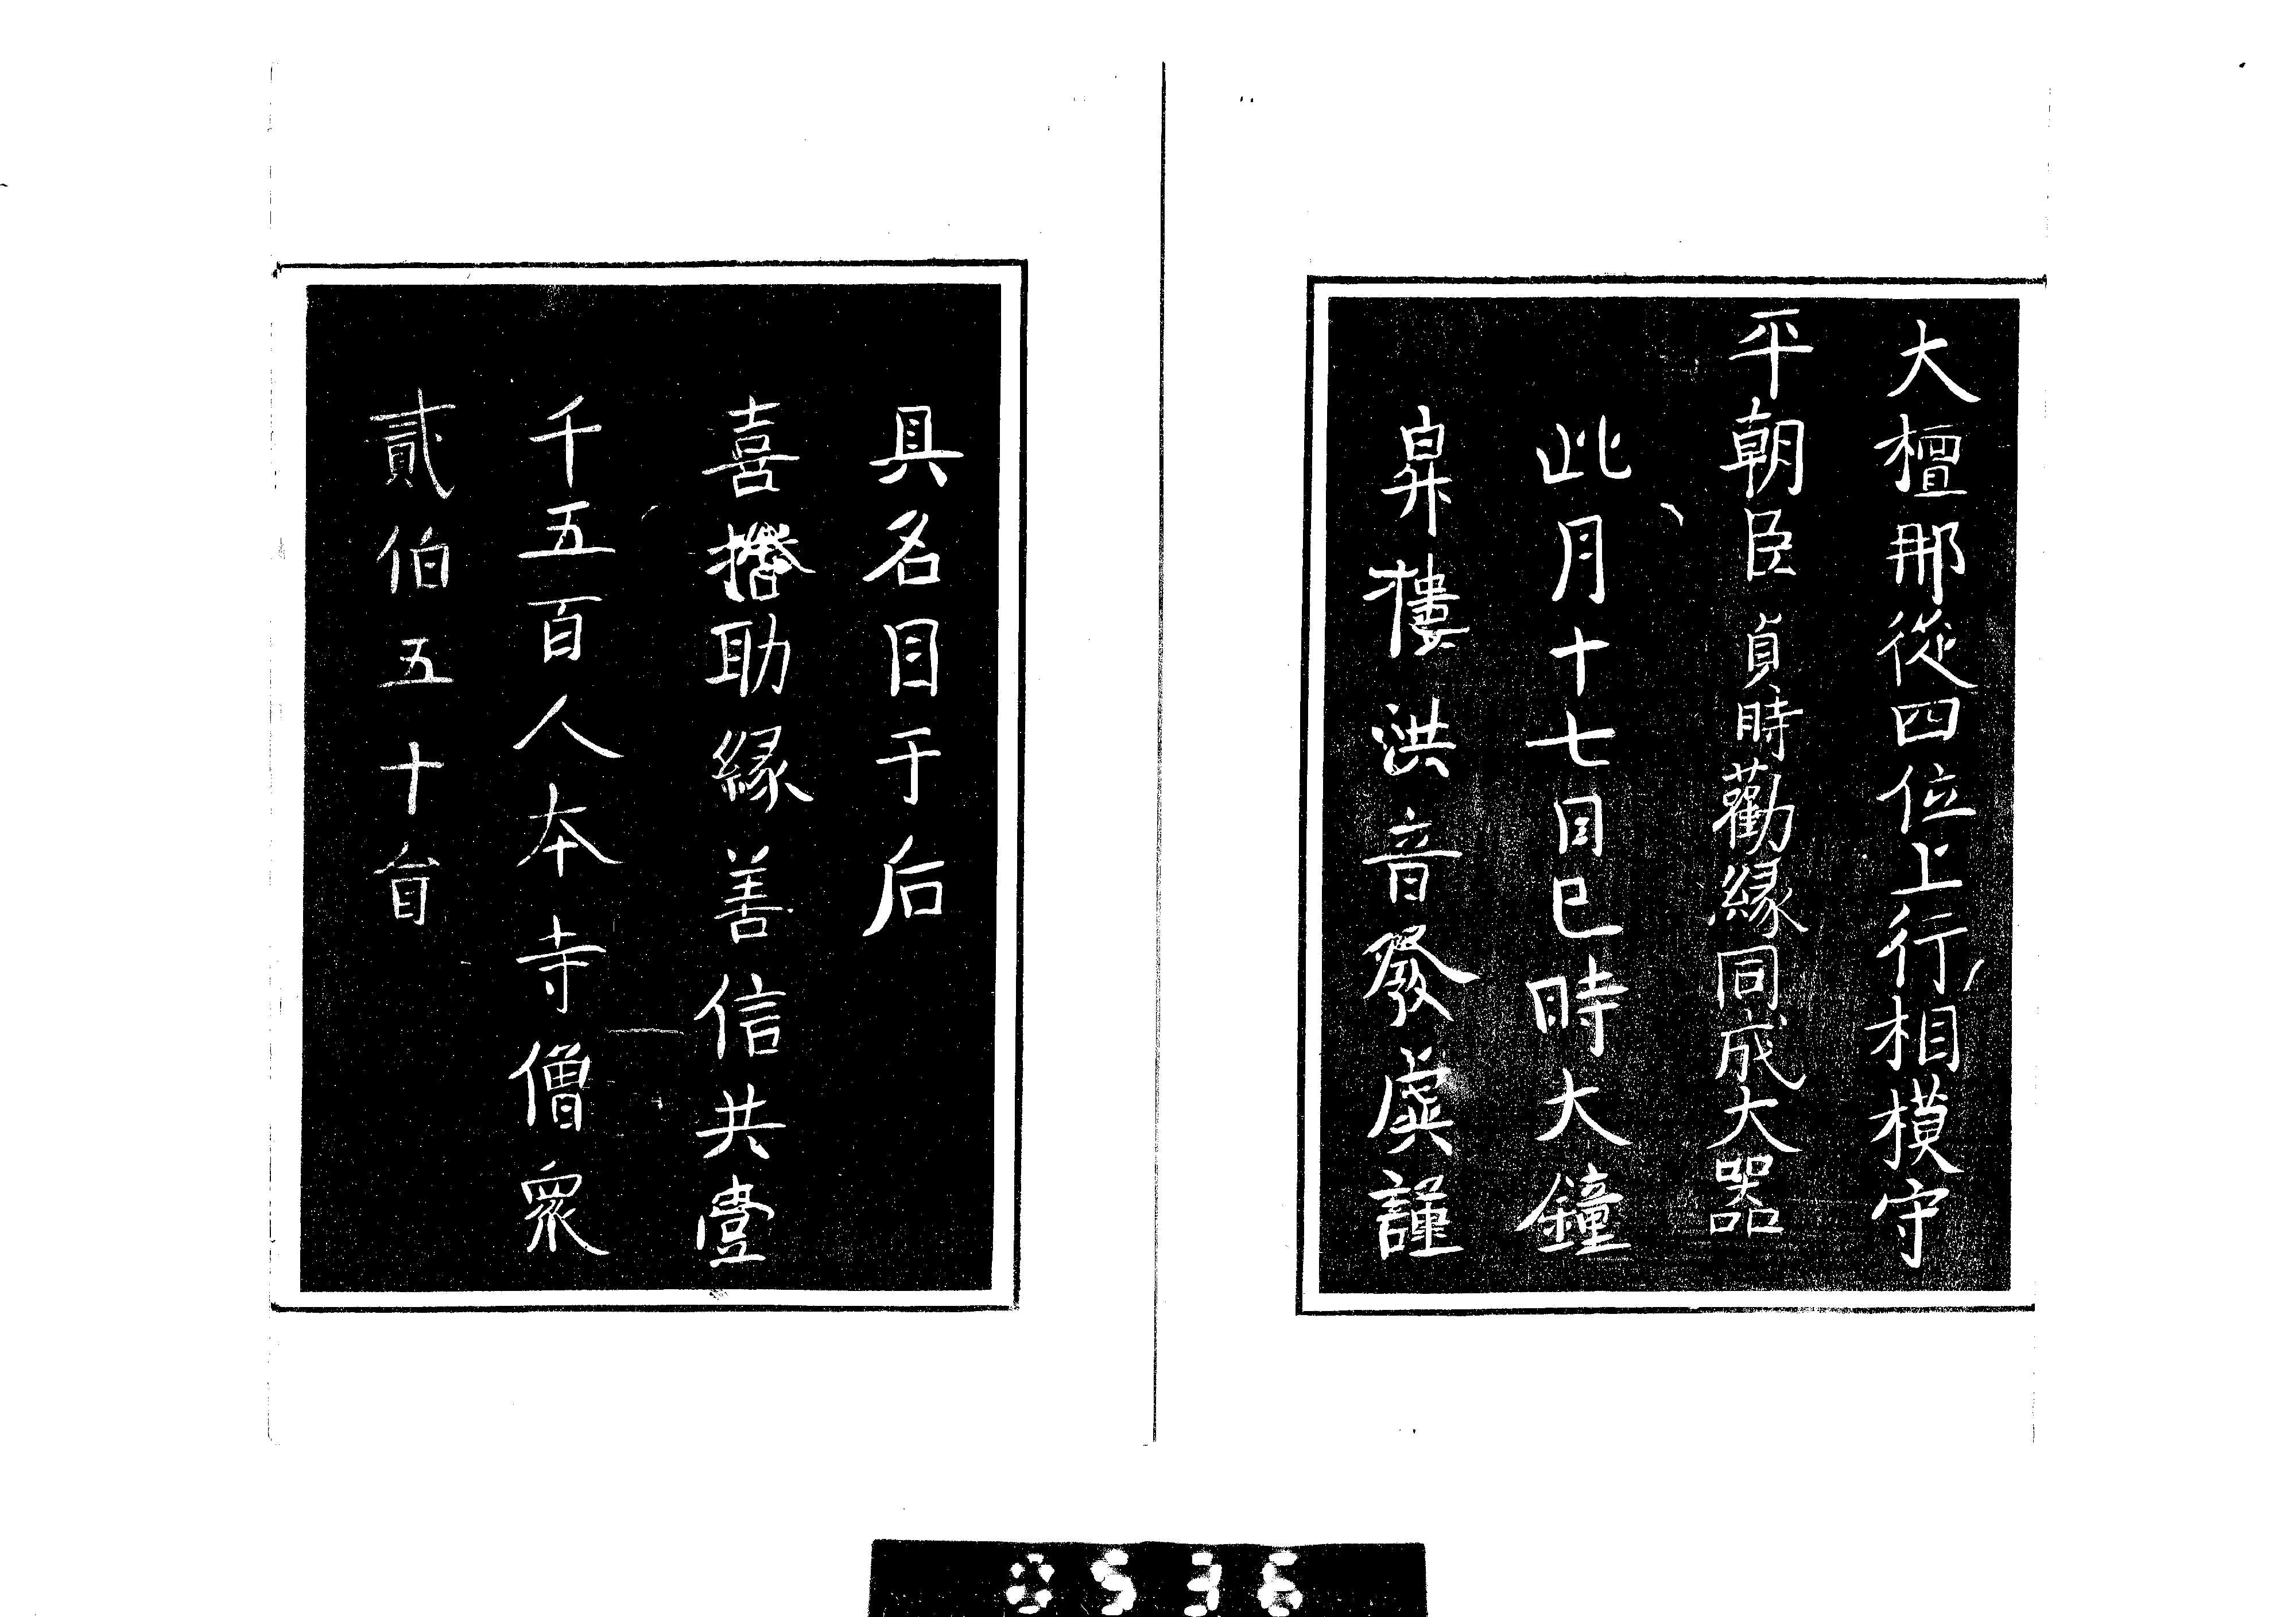 大檀那從四位上行相模守
平朝臣貞時勸緣同成大器
此月十七日巳時大鐘
昇樓洪音發虛謹
具名目于后
喜捨助緣善信共壹
千五百人本寺僧衆
貳伯五十員